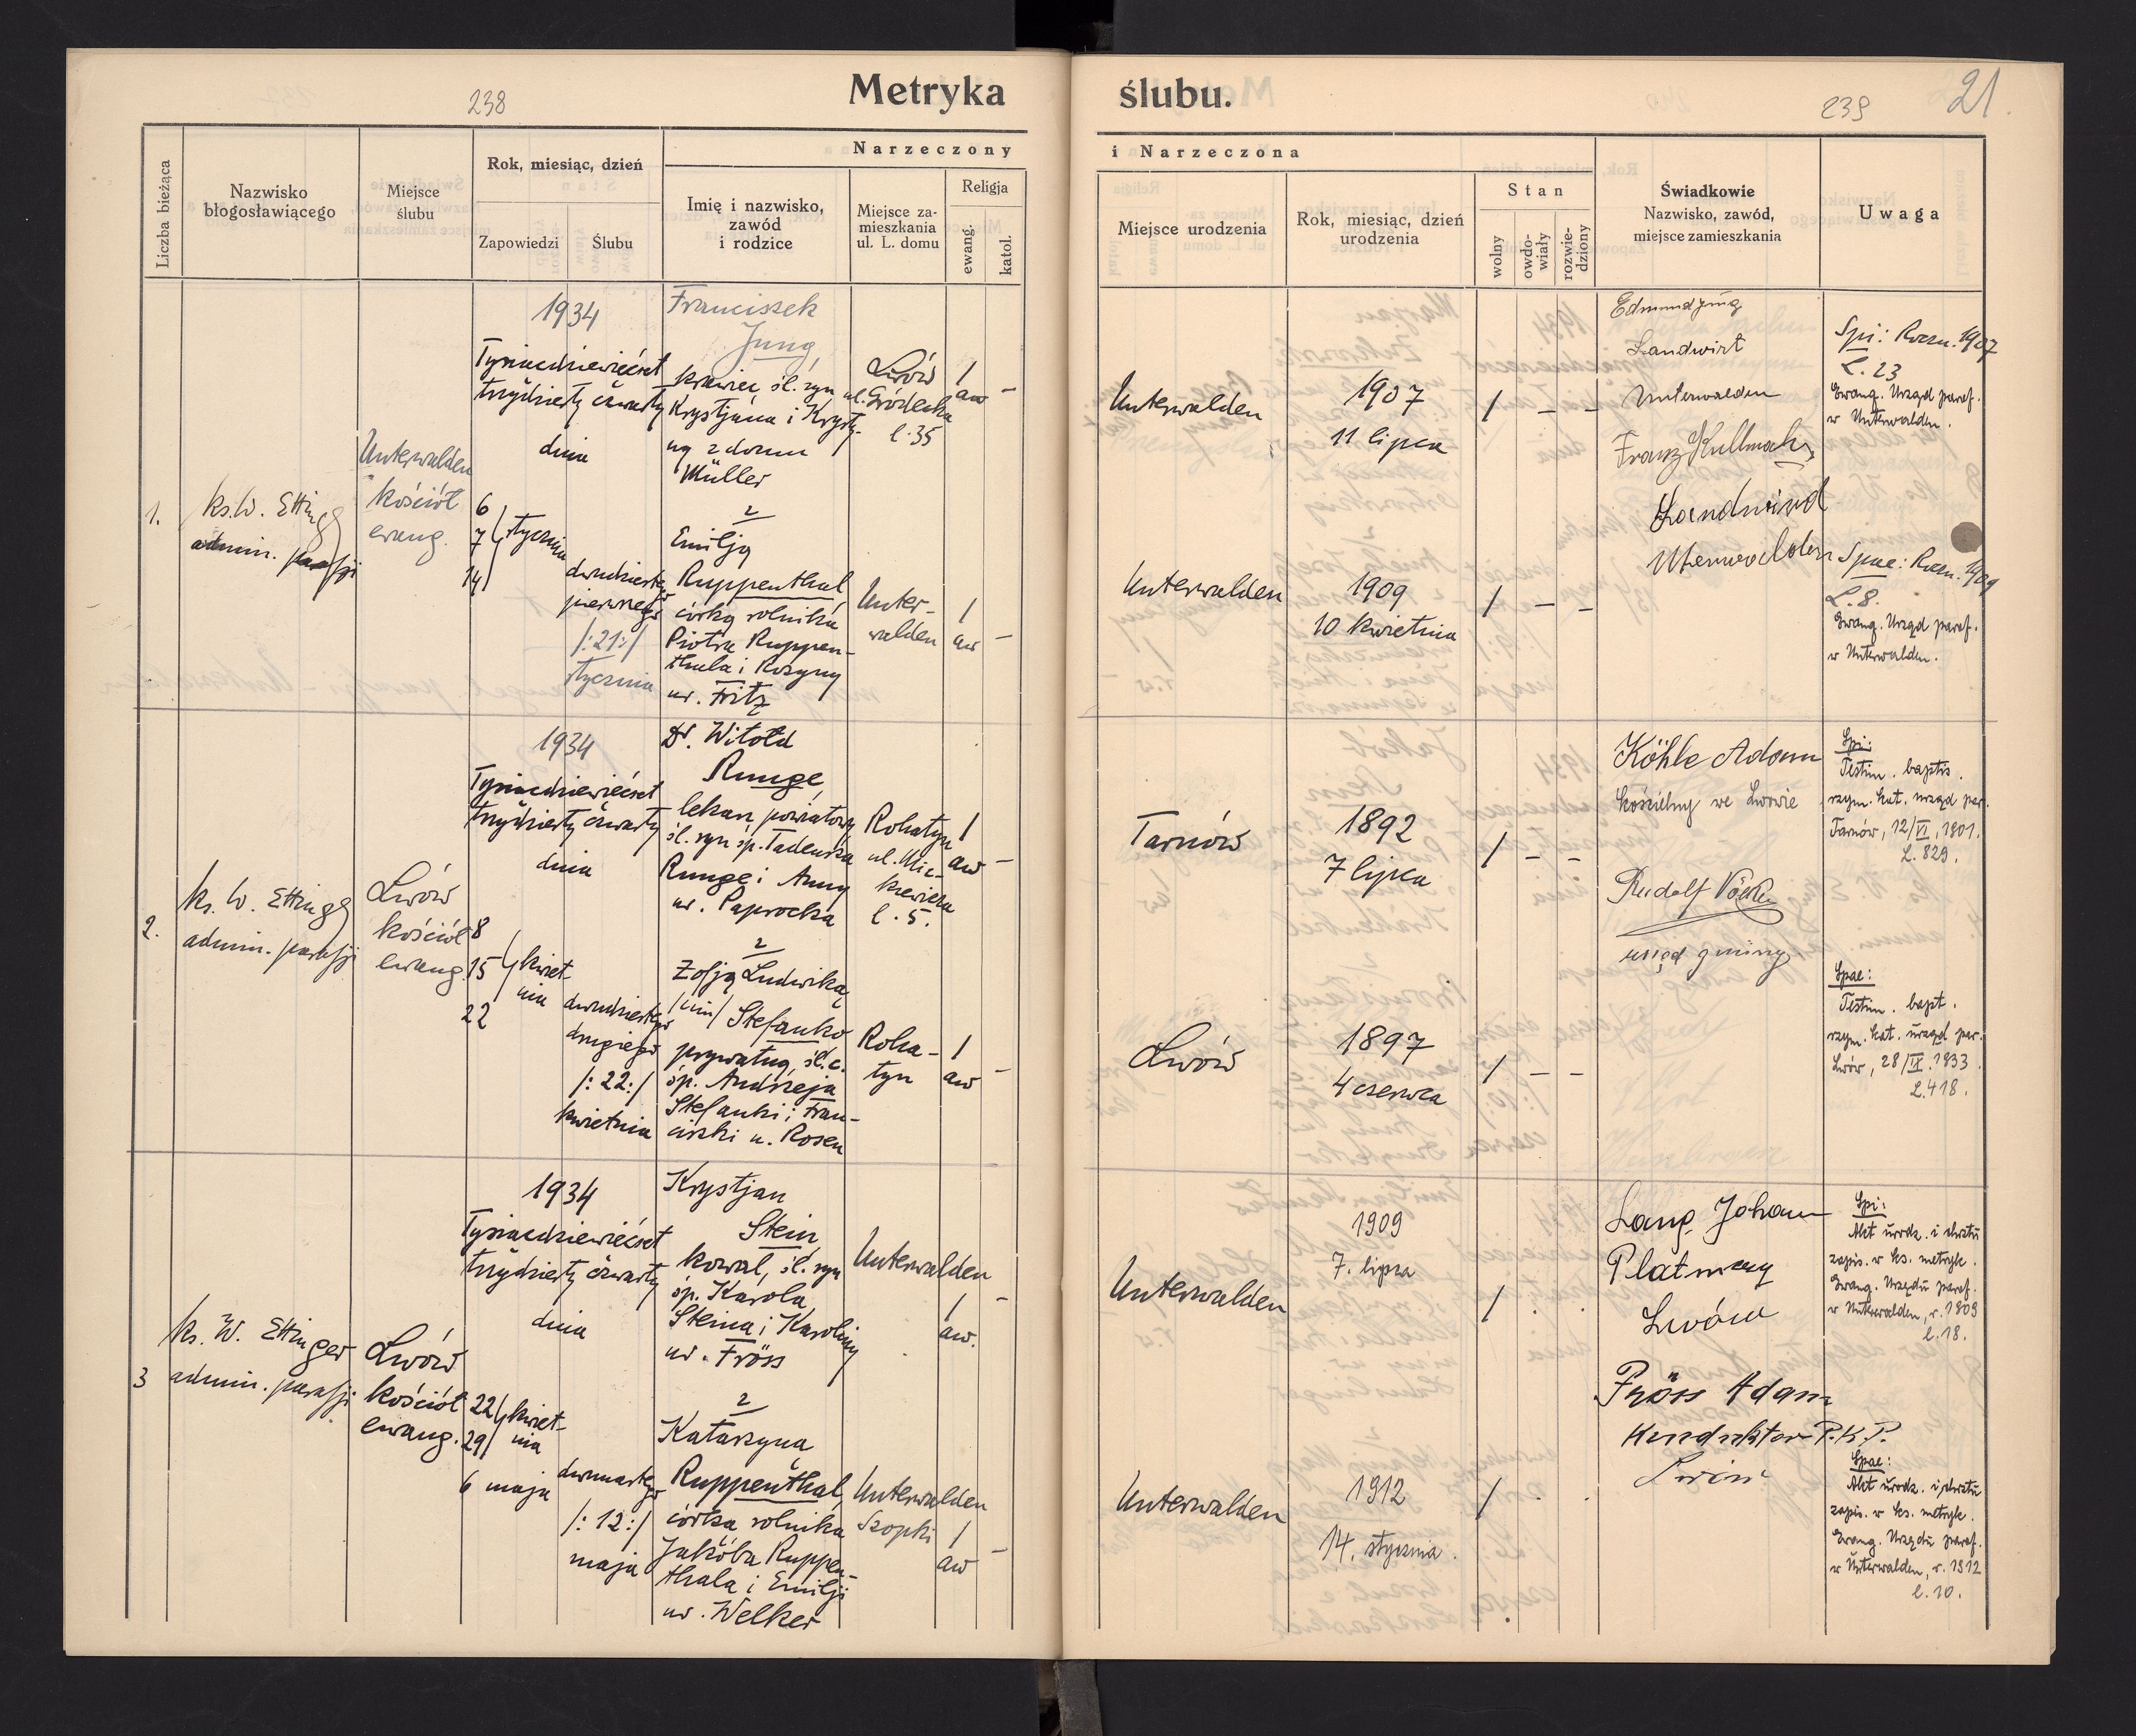 238
Metryka
ślubu.
239
21.
Liczba bieżąca
Nazwisko
błogosławiącego
Miejsce
ślubu
Rok, miesiąc, dzień
Zapowiedzi
Ślubu
Narzeczony
Imię i nazwisko,
zawód
i rodzice
Miejsce za-
mieszkania
ul. L. domu
Religja
ewang.
katol.
i Narzeczona
Miejsce urodzenia
Rok, miesiąc, dzień
urodzenia
Stan
wolny
owdo-
wiały
rozwie-
dziony
Świadkowie
Nazwisko, zawód,
miejsce zamieszkania
Uwaga
1.
ks. W. Etting
admin. parafji
Unterwalden
kościół
ewang.
1934
Tysiącdziewięćset
trzydziesty czwarty
dnia
6
7 stycznia
14
dwudziestego
pierwszego
/:21:/
stycznia
Franciszek
Jung,
krawiec, śl. syn
Krystjana i Krysty-
ny z domu
Müller
z
Emilją
Ruppenthal,
córką rolnika
Piotra Ruppen-
thala i Rozyny
ur. Fritz
Lwów
ul. Gródecka
l. 35
1
aw
-
Unter-
walden
1
aw
-
Unterwalden
1907
11 lipca
1 - -
Unterwalden
1909
10 kwietnia
1 - -
Edmund Jung
Landwirt
Unterwalden
Franz Kullmann
Landwird
Uterwalden
Spi: Roczn. 1907
L. 23
Ewang. Urząd paraf.
w Unterwalden.
Spae: Roczn. 1909
L. 8.
Ewang. Urząd paraf.
w Unterwalden.
2.
ks. W. Etting
admin. parafji
Lwów
kościół
ewang.
1934
Tysiącdziewięćset
trzydziesty czwarty
dnia
8
15 kwiet-
nia
22
dwudziestego
drugiego
/:22:/
kwietnia
Dr. Witold
Runge,
lekarz powiatowy
śl. syn śp. Tadeusza
Runge i Anny
ur. Paprocka
z
Zofją Ludwiką
/im/ Stefanko
prywatną, śl. c.
śp. Andrzeja
Stefanki i Fran-
ciszki u. Rosen
Rohatyn
ul. Mic-
kiewicza
l. 5.
1
aw
-
Roha-
tyn
1
aw
-
Tarnów
1892
7 lipca
1 - -
Lwów
1897
4 czerwca
1 - -
Köhle Adam
kościelny we Lwowie
Rudolf
Spi:
Testim. baptis.
rzym. kat. urząd par.
Tarnów, 12/VI, 1901.
L. 829.
Spae:
Testim. bapt.
rzym. kat. urząd par.
Lwów, 28/IX. 1933.
L. 418.
3
ks. W. Ettinger
admin. parafji
Lwów
kościół
ewang.
1934
Tysiącdziewięćset
trzydziesty czwarty
dnia
22 kwiet-
29 nia
6 maja
dwunastego
/:12:/
maja
Krystjan
Stein
kowal, śl. syn
śp. Karola
Steina i Karoliny
ur. Fröss
z
Katarzyną
Ruppenthal,
córka rolnika
Jakóba Ruppen-
thala i Emilji
ur. Welker
Unterwalden
1
aw.
-
Unterwalden
Szopki
1
aw
-
Unterwalden
1909
7. lipca
1 . .
Unterwalden
1912
14. stycznia.
1 . .
Lang Johann
Lwów
Fröss Adam
Konduktor P.K.P.
Lwów
Spi:
Akt urodz. i chrztu
zapis. w ks. metryk.
Ewang. Urzędu paraf.
w Unterwalden, r. 1909
l. 18.
Spae:
Akt urodz. i chrztu
zapis. w ks. metryk.
Ewang. Urzędu paraf.
w Unterwalden, r. 1912
l. 10.